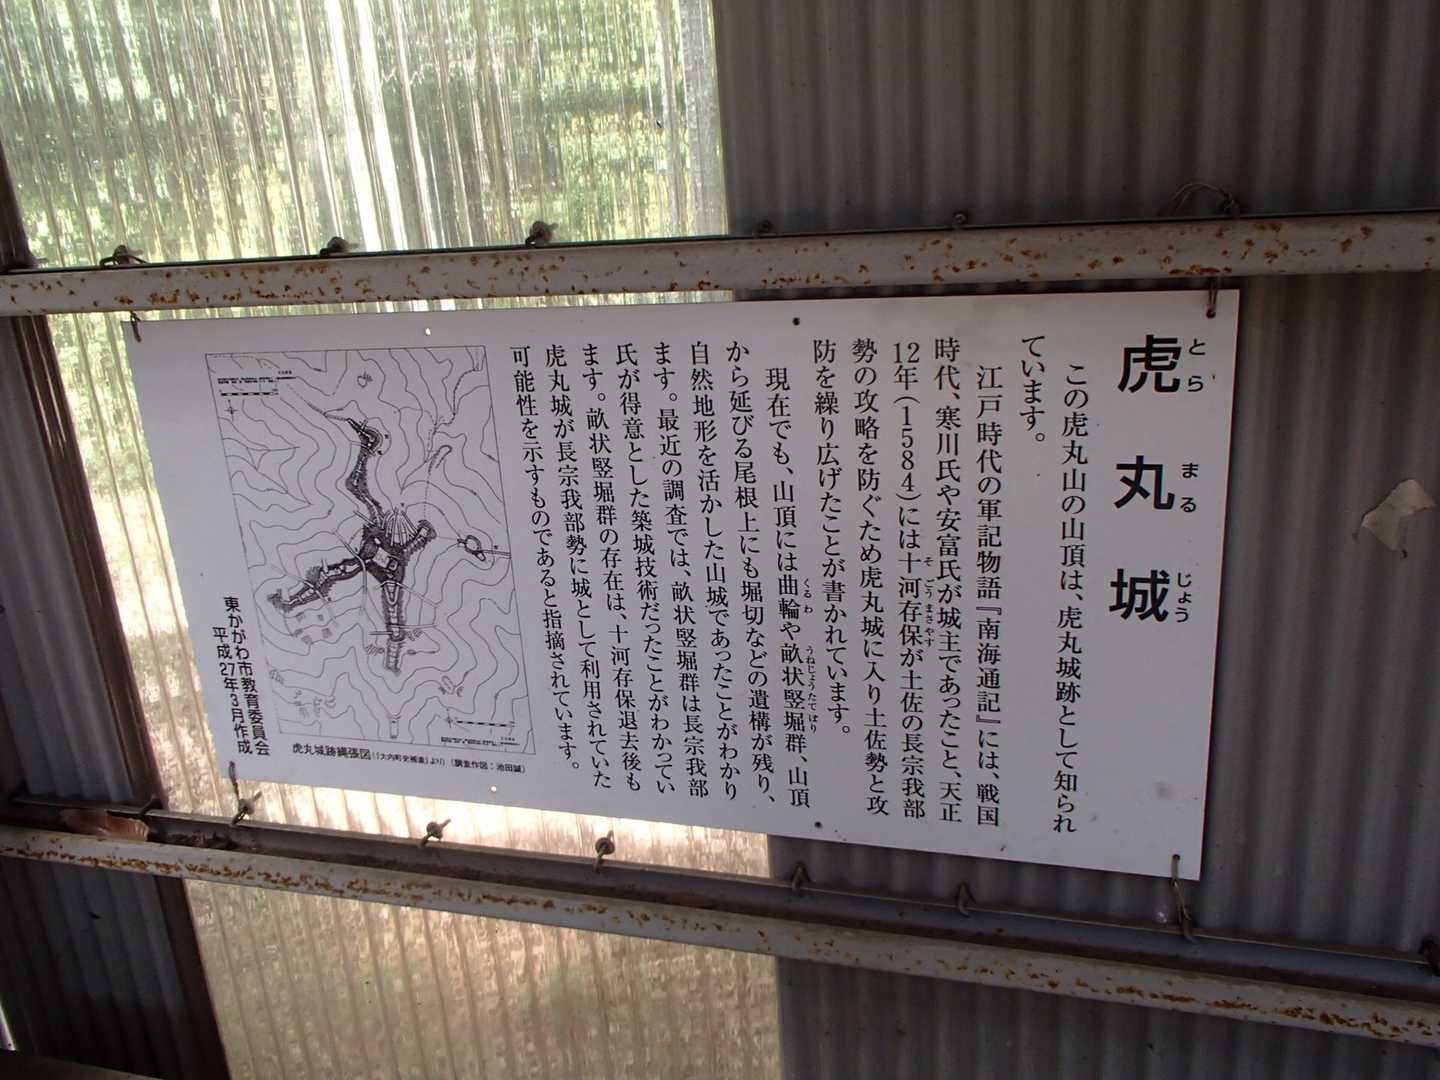 虎丸城
とら まる じょう
この虎丸山の山頂は、虎丸城跡として知られ
ています。
江戸時代の軍記物語『南海通記』には、戦国
時代、寒川氏や安富氏が城主であったこと、天正
12年(1584)には十河存保が土佐の長宗我部
そごうまさやす
勢の攻略を防ぐため虎丸城に入り土佐勢と攻
防を繰り広げたことが書かれています。
現在でも、山頂には曲輪や畝状竪堀群、山頂
くるわ うねじょうたてぼり
から延びる尾根上にも堀切などの遺構が残り、
自然地形を活かした山城であったことがわかり
ます。最近の調査では、畝状竪堀群は長宗我部
氏が得意とした築城技術だったことがわかってい
ます。畝状竪堀群の存在は、十河存保退去後も
虎丸城が長宗我部勢に城として利用されていた
可能性を示すものであると指摘されています。
虎丸城跡縄張図(『大内町史補遺』より)(調査作図:池田誠)
東かがわ市教育委員会
平成27年3月作成